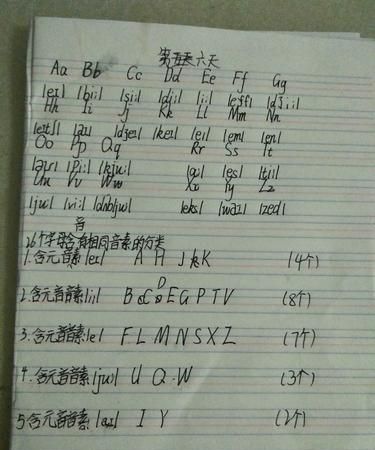 第五天六天
Aa Bb Cc Dd Ee Ff Gg
|eɪ| |biː| |siː| |diː| |iː| |eff| |dʒiː|
Hh Ii Jj Kk Ll Mm Nn
|eɪtʃ| |aɪ| |dʒeɪ| |keɪ| |el| |em| |en|
Oo Pp Qq Rr Ss Tt
|piː| |kjuː| |es| |tiː|
Uu Vv Ww Xx Yy Zz
|juː| |viː| |eks| |waɪ| |zed|
音
26个字母含有相同音素的分类
1.含元音素|eɪ| A H J K (4个)
D
2.含元音素|iː| B C E G P T V (8个)
3.含元音素|e| F L M N S X Z (7个)
4.含元音素|juː| U Q W (3个)
5含元音素|aɪ| I Y (2个)